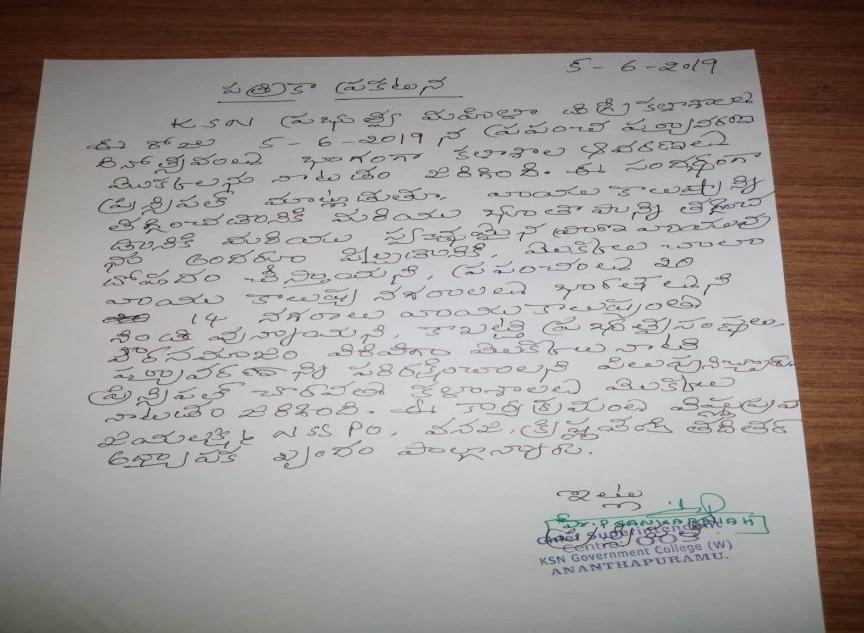 5 - 6 - 2019
పత్రికా ప్రకటన
KSN ప్రభుత్వ మహిళా డిగ్రీ కళాశాలలు
ఈ రోజు 5 - 6 - 2019 న ప్రపంచ పర్యావరణ
దినోత్సవంలు భాగంగా కళాశాల ఆవరణలు
మొక్కలను నాటడం జరిగింది. ఈ సందర్భంగా
ప్రిన్సిపల్ మాట్లాడుతూ, వాయు కాలుష్యాన్ని
తగ్గించడానికి మరియు భూతాపాన్ని తగ్గించ
డానికి మరియు స్వచ్ఛమైన ప్రాణవాయువు
ను అందరూ పీల్చడానికి, మొక్కలు చాలా
దోహదం చేస్తాయని, ప్రపంచంలు 20
వాయు కాలుష్య నగరాలలు భారతదేశంలోని
14 నగరాలు వాయు కాలుష్యంతో
నిండి వున్నాయని, కాబట్టి ప్రభుత్వ సంస్థలు,
పౌరసమాజం విరివిగా మొక్కలు నాటి
పర్యావరణాన్ని పరిరక్షించాలని పిలుపునిచ్చారు.
ప్రిన్సిపల్ చొరవతో కళాశాలలు మొక్కలు
నాటడం జరిగింది. ఈ కార్యక్రమంలు విష్ణుప్రియ
జయలక్ష్మి NSS PO, వనజ, కృష్ణవేణి తదితర
అధ్యాపక బృందం పాల్గొన్నారు.
ఇట్లు
Dr. P SANKARAIAH
Chief Superintendent
Centre: 003
KSN Government College (W)
ANANTHAPURAMU.